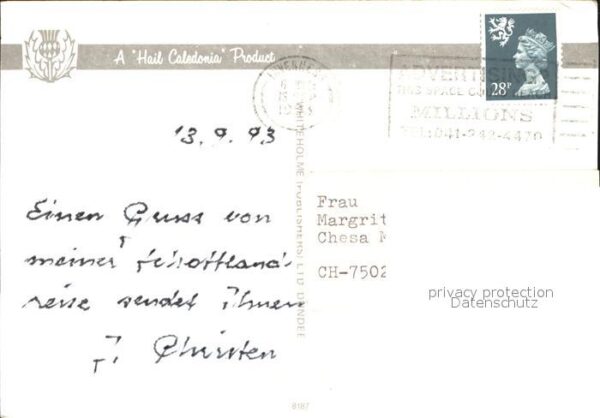 A "Hail Caledonia" Product
28P
ADVERTISING?
THIS SPACE
MILLIONS
TEL: 041-242-4470
13.9.93
WHITEHOLME (PUBLISHERS) LTD. DUNDEE
Einen Gruss von
meiner Schottland
reise sendet Ihnen
J. Christen
Frau
Margrit
Chesa
CH-7502
privacy protection
Datenschutz
8187